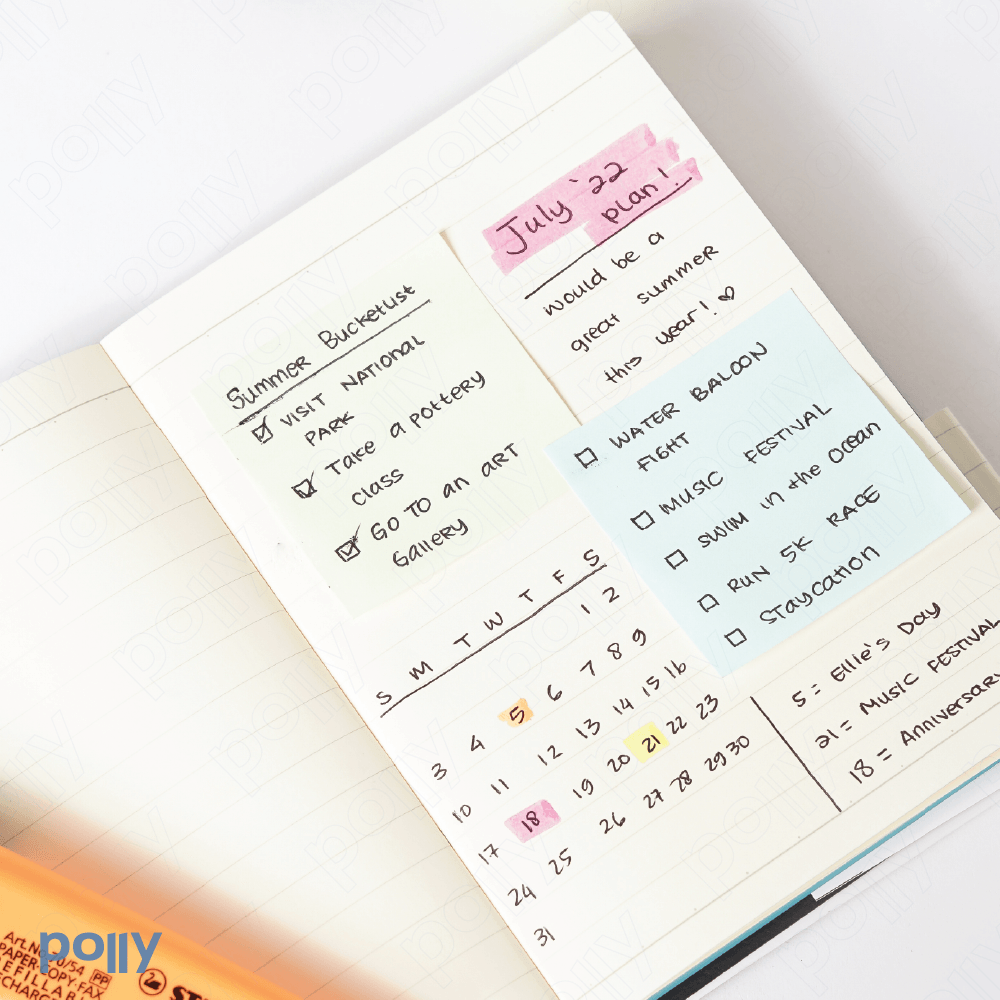 July '22
plan!
would be a
great summer
this year! ♡
Summer Bucketlist
☑ VISIT NATIONAL
PARK
☑ Take a pottery
class
☑ GO TO an ART
Gallery
☐ WATER BALOON
FIGHT
☐ MUSIC FESTIVAL
☐ SWIM in the Ocean
☐ RUN 5K RACE
☐ STAYCATION
S M T W T F S
1 2
3 4 5 6 7 8 9
10 11 12 13 14 15 16
17 18 19 20 21 22 23
24 25 26 27 28 29 30
31
5 = Ellie's Day
21 = MUSIC FESTIVAL
18 = Anniversary
polly
PAPER-COPY-FAX
PP